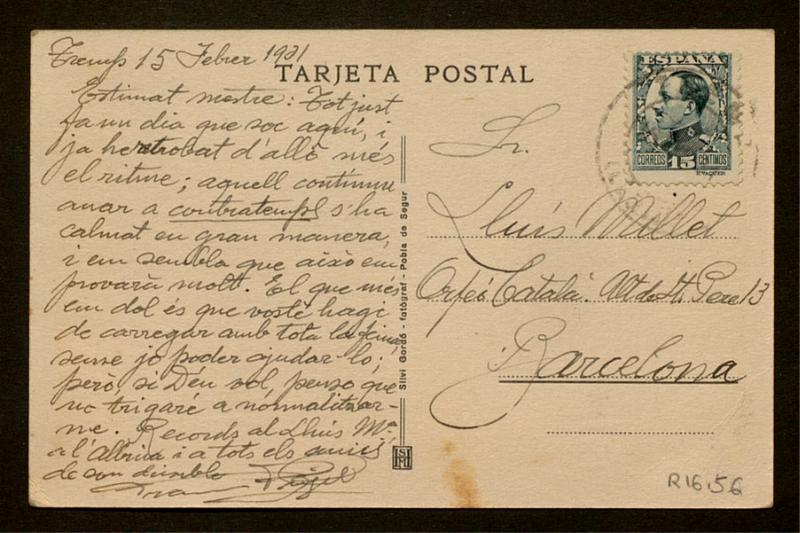 Tremp 15 Febrer 1931
TARJETA POSTAL
Estimat mestre: Tot just
fa un dia que soc aquí, i
ja he trobat d'allò més
el ritme; aquell continuu
anar a contratemps s'ha
calmat en gran manera,
i em sembla que això em
provarà molt. El que més
em dol és que vostè hagi
de carregar amb tota la feina,
sense jo poder ajudar-lo;
però si Déu vol, penso que
no trigaré a normalitzar-
me. Records al Lluís Mª
a l'Albina i a tots els amics
de son deixeble
Fran Pujol
Silvi Gordó - fotògraf - Pobla de Segur
ESPAÑA
CORREOS 15 CENTIMOS
Sr.
Lluís Millet
Orfeó Català. Alt de St. Pere 13
Barcelona
R16.56